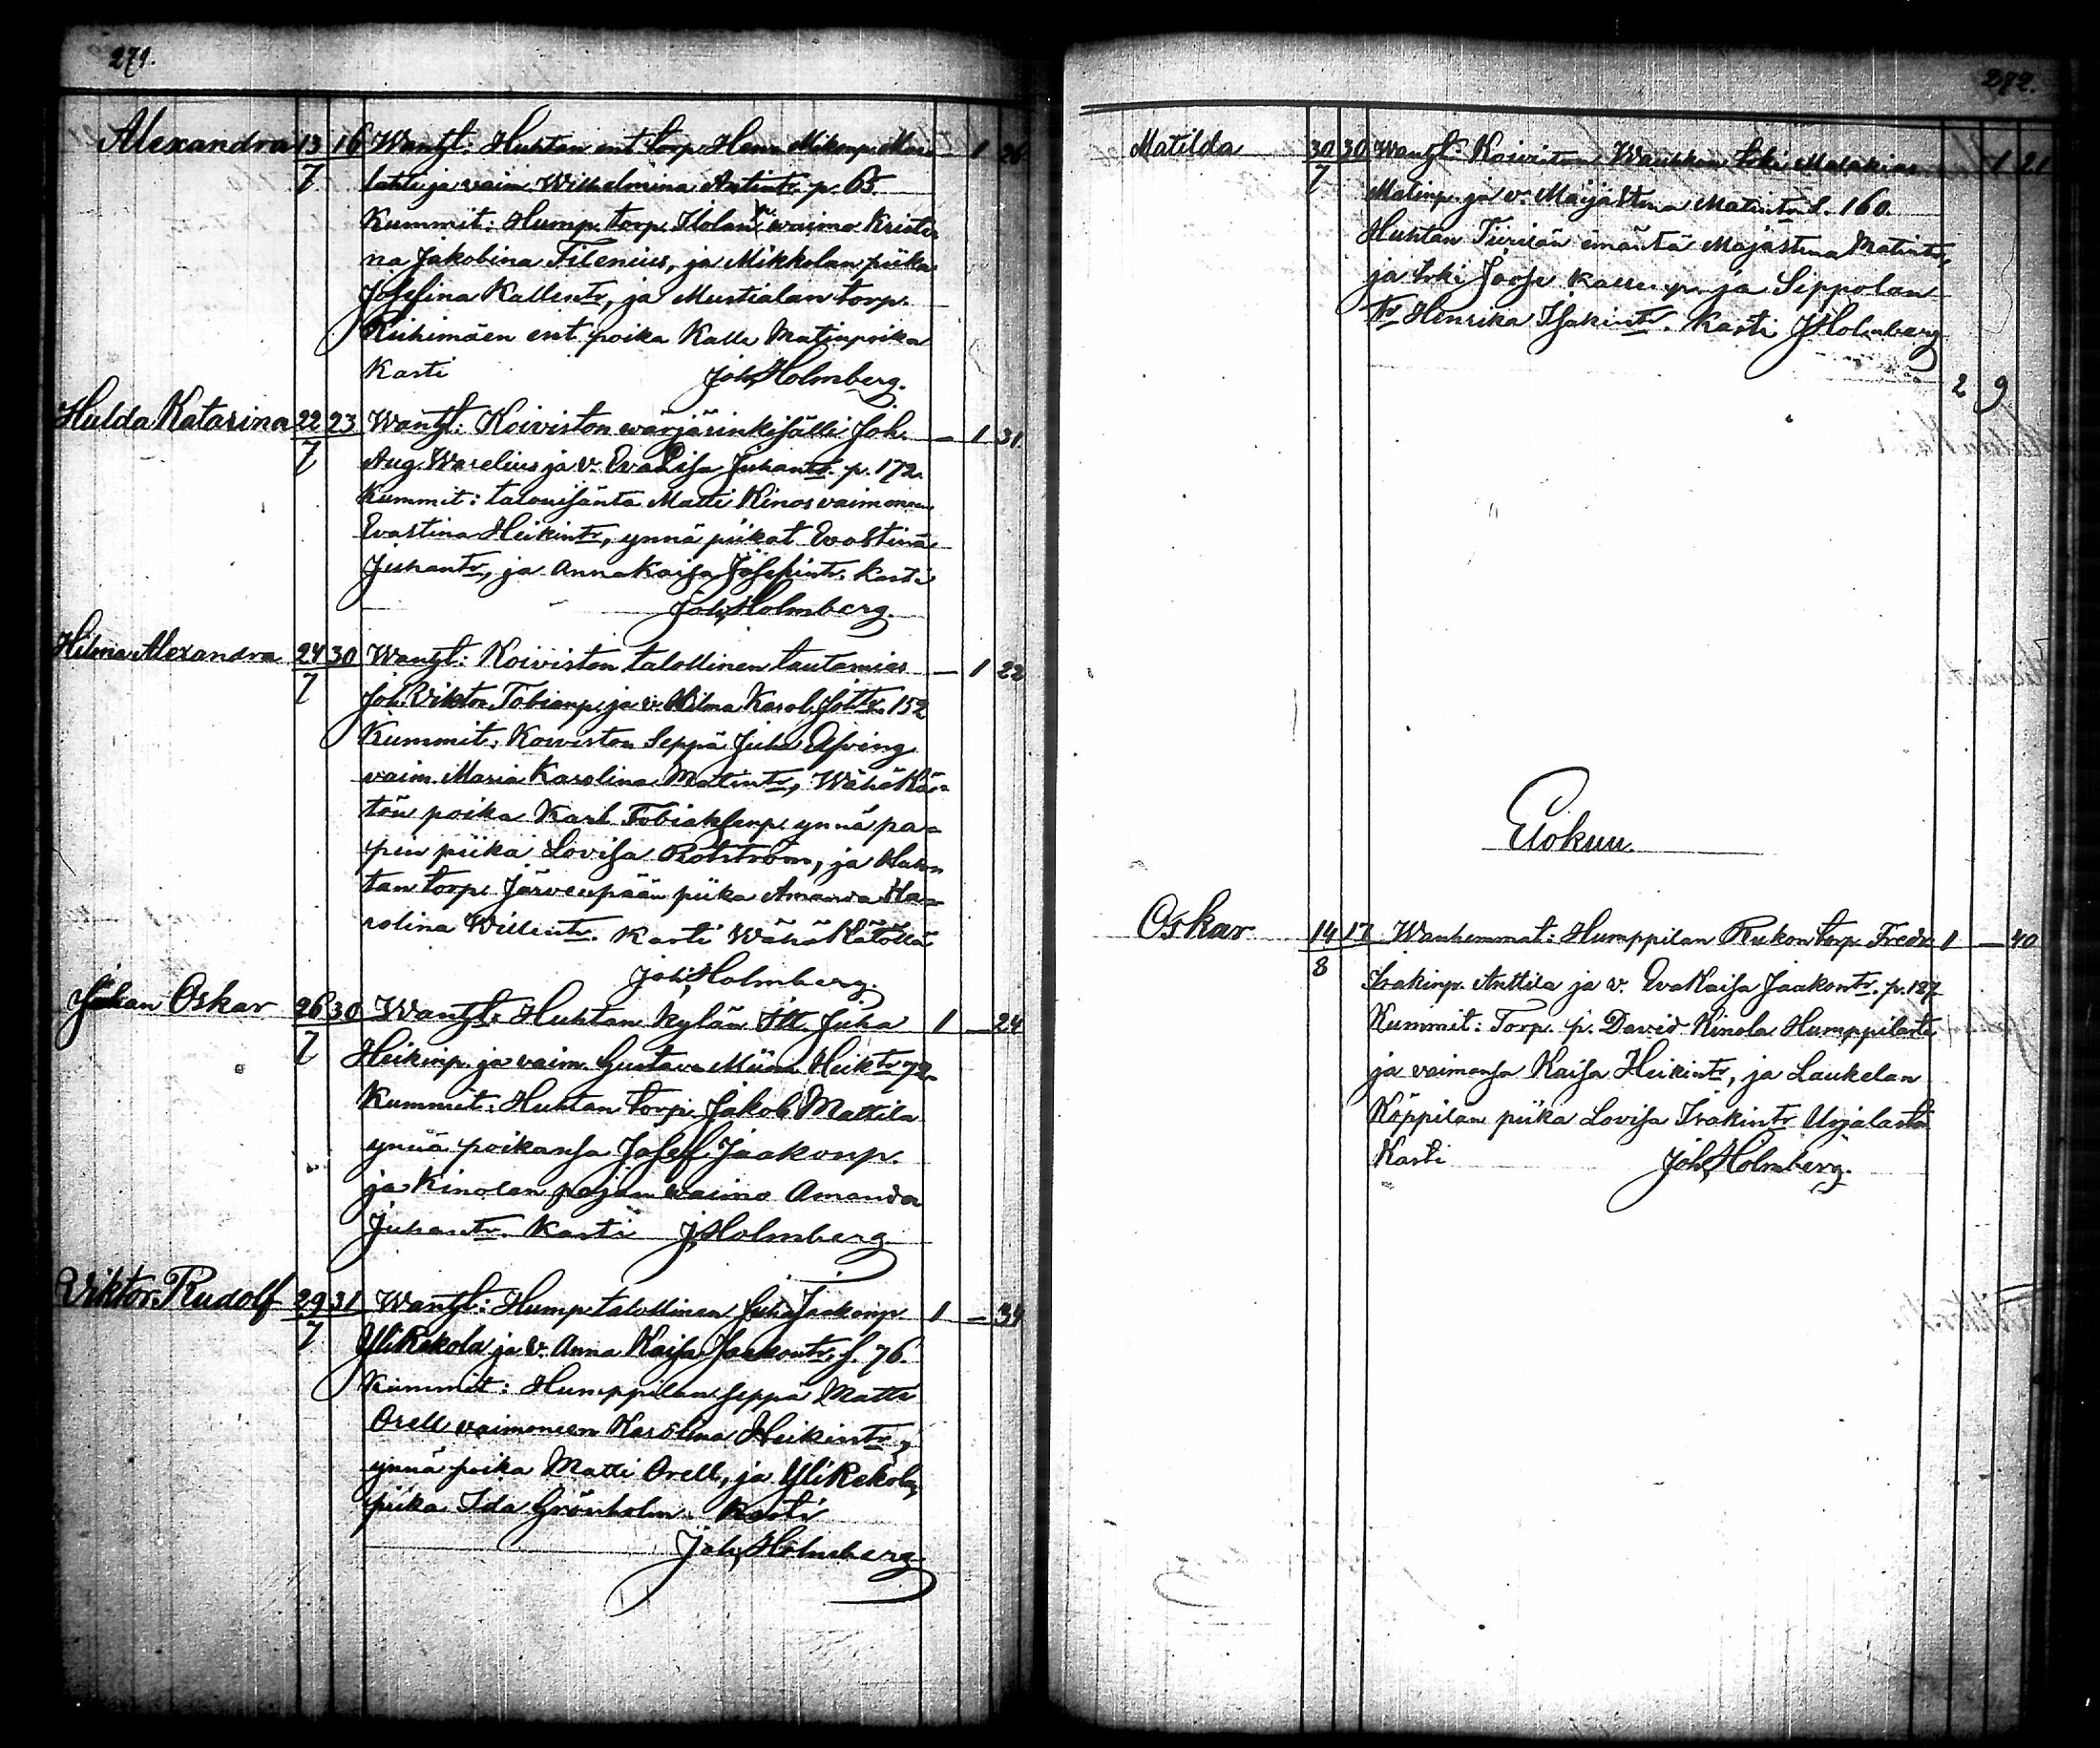 271.
Alexandra 13 16 Wanhl: Huhtan ent torp. Herm. Mikonp. Mar- 1 26
7 lahti ja vaim. Wilhelmina Antintr p. 65.
Kummit: Hump. torp. Ilolan waimo Kristi-
na Jakobina Filenius, ja Mikkolan piika
Josefina Kallentr, ja Mustialan torp.
Riihimäen ent poika Kalle Matinpoika
Kasti Joh. Holmberg.
Hulda Katarina 22 23 Wanhl: Koiviston wärjärinkisälli Joh. – 1 31
7 Aug. Warelius ja v. Eva Lisa Juhantr. p. 172.
Kummit: talonisäntä Matti Kinos vaimoneen
Evastina Heikintr, ynnä piikat Evastina
Juhantr, ja Annakaisa Josefintr. Kasti
Joh. Holmberg.
Hilma Alexandra 24 30 Wanhl: Koiviston talollinen lautamies – 1 22
7 Joh. Viktor Tobianp. ja v. Wilma Karol. Joh.tr. 152
Kummit: Koiviston Seppä Juha
vaim. Maria Karolina Matintr, WähäKä-
tön poika Karl Tobiaksenp. ynnä pa-
pin piika Lovisa Rotström, ja
tan torp. Järvenpään piika Amanda Ka-
rolina Willentr. Kasti WähäKätöllä
Joh. Holmberg.
Juhan Oskar 26 30 Wanhl: Huhtan Kylän Itt. Juha 1 – 24
7 Heikinp. ja vaim. Gustava Miina Heiktr 72.
Kummit: Huhtan torp. Jakob Mattila
ynnä poikansa Josef Jaakonp.
ja Kinolan pajan waimo Amanda
Juhantr. Kasti J. Holmberg
Viktor Rudolf 29 31 Wanhl: Hump. talollinen Juha Jaakonp. 1 – 34
7 YliKekola ja v. Anna Kaisa Jaakontr, s. 76.
Kummit: Humppilan seppä Matti
Orell vaimoneen Karolina Heikintr,
ynnä poika Matti Orell, ja YliKekolan
piika Ida Grönholm. Kasti
Joh. Holmberg
272.
Matilda 30 30 Wanhl: Koiviston Waukkon Malakias 1 21
7 Matinp. ja v. Maijastina Matintr S. 160.
Huhtan Tiirilän emäntä Majastina Matintr,
ja Joose Kallenp. ja Sippolan
tr Henrika Isakintr. Kasti J. Holmberg
2 9
Elokuu.
Oskar 14 17 Wanhemmat: Humppilan Rukon torp. Fredr. 1 – 40
8 Isakinp. Anttila ja v. EvaKaisa Jaakontr. p. 127
Kummit: Torp. p. David Kinola Humppilasta
ja vaimonsa Kaisa Heikintr, ja Laukelan
Köppilan piika Lovisa Isakintr Urjalasta
Kasti Joh. Holmberg.